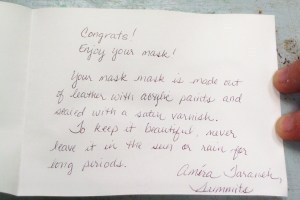 Congrats!
Enjoy your mask!
Your mask mask is made out
of leather with acrylic paints and
sealed with a satin varnish.
To keep it beautiful, never
leave it in the sun or rain for
long periods.